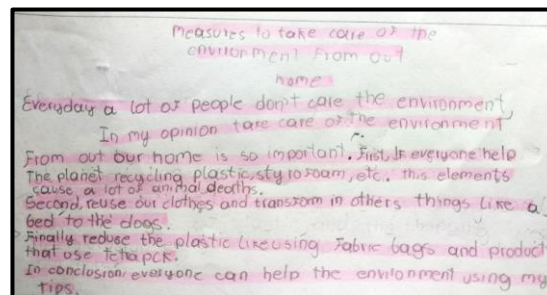 measures to take care of the
environment from out
home
Everyday a lot of people don't care the environment,
In my opinion take care of the environment
From out our home is so important. First, If everyone help
The planet recycling plastic, styrofoam, etc. this elements
cause a lot of animal deaths.
Second, reuse our clothes and transform in others things like a
bed to the dogs.
Finally reduce the plastic like using fabric bags and product
that use
In conclusion, everyone can help the environment using my
tips.